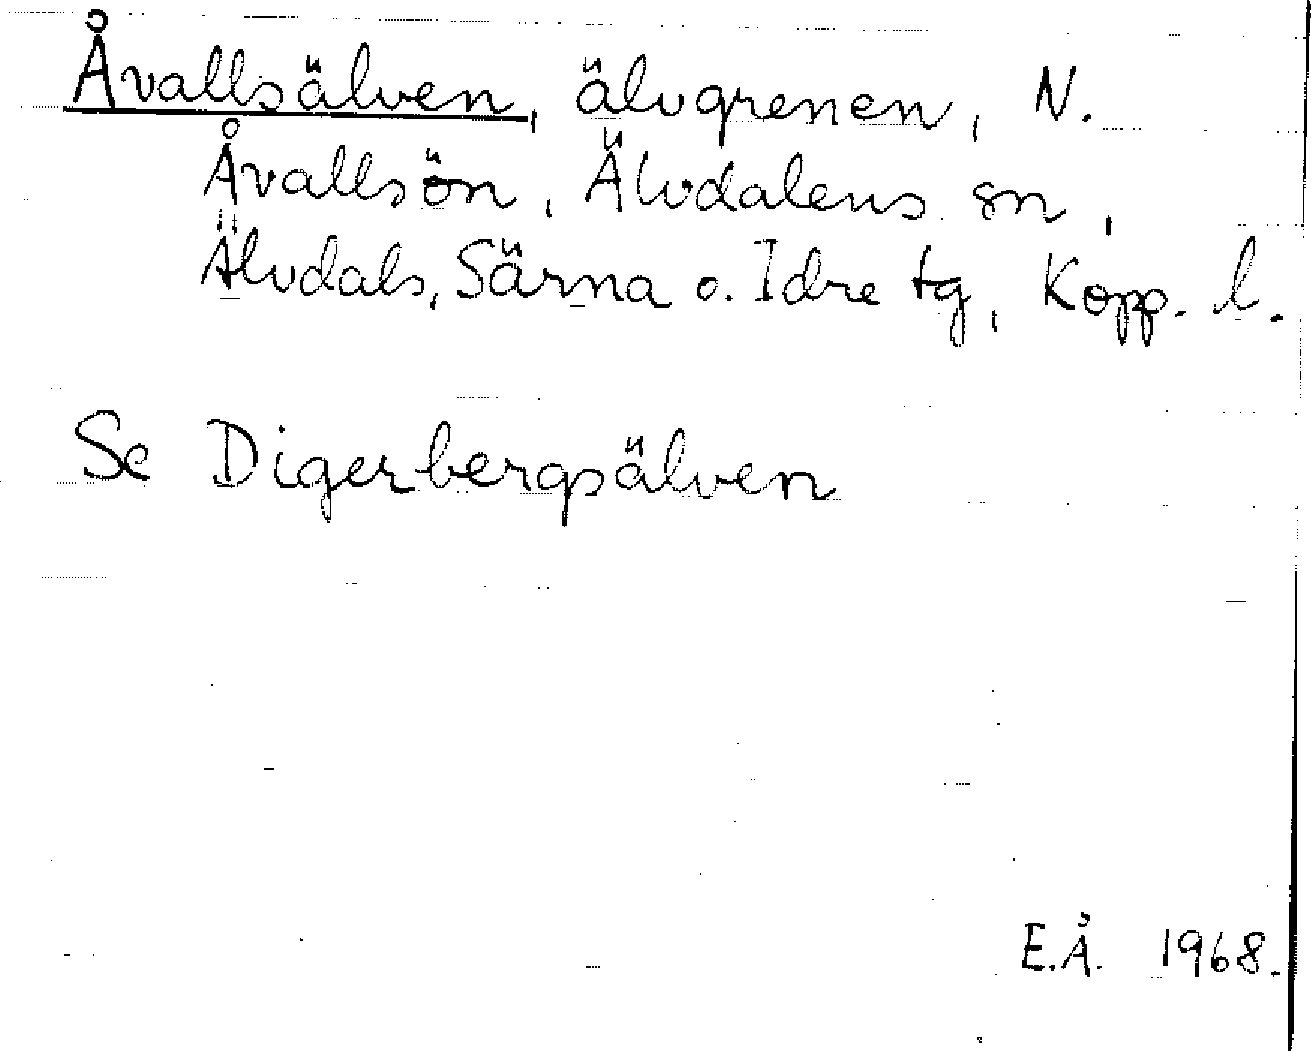 Åvallsälven, älvgrenen, N.
Åvallsön, Älvdalens sn,
Älvdals, Särna o. Idre tg, Kopp. l.
Se Digerbergsälven
E.Å. 1968.